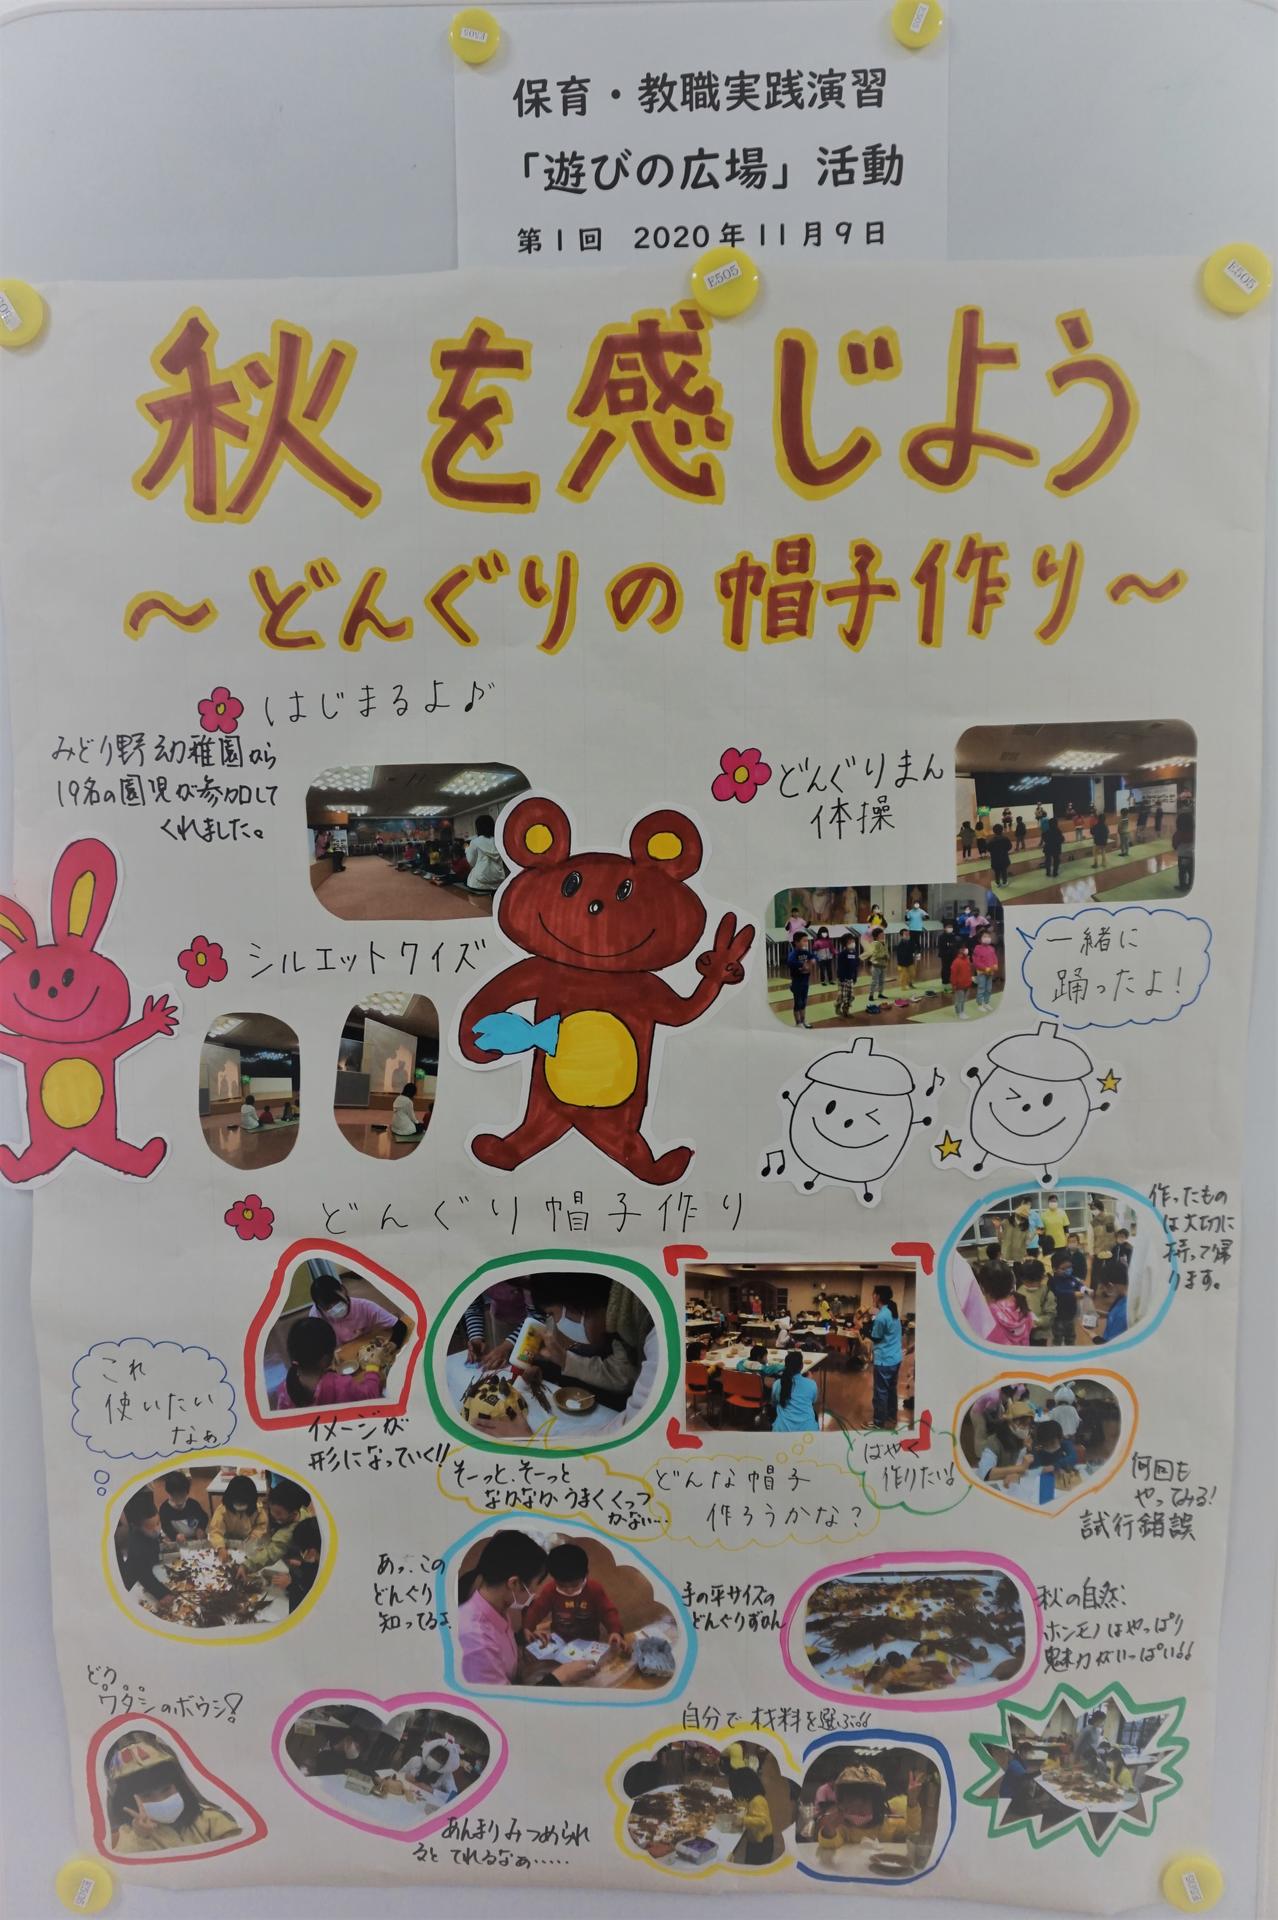 保育・教職実践演習
「遊びの広場」活動
第1回 2020年11月9日
E505
E505
E505
E505
秋を感じよう
～どんぐりの帽子作り～
はじまるよ♪
みどり野幼稚園から
19名の園児が参加して
くれました。
どんぐりまん
体操
シルエットクイズ
一緒に
踊ったよ！
どんぐり帽子作り
作ったもの
は大切に
持って帰
ります。
これ
使いたい
なぁ
イメージが
形になっていく!!
そーっと、そーっと
なかなかうまくくっつ
かない…
どんな帽子
作ろうかな？
はやく
作りたい!
何回も
やってみる!
試行錯誤
あっ、この
どんぐり
知ってるよ
手の平サイズの
どんぐりずかん
秋の自然、
ホンモノはやっぱり
魅力がいっぱい!!
どう。。。
ワタシのボウシ!
自分で材料を選ぶ!!
あんまりみつめられ
ると てれるなぁ……